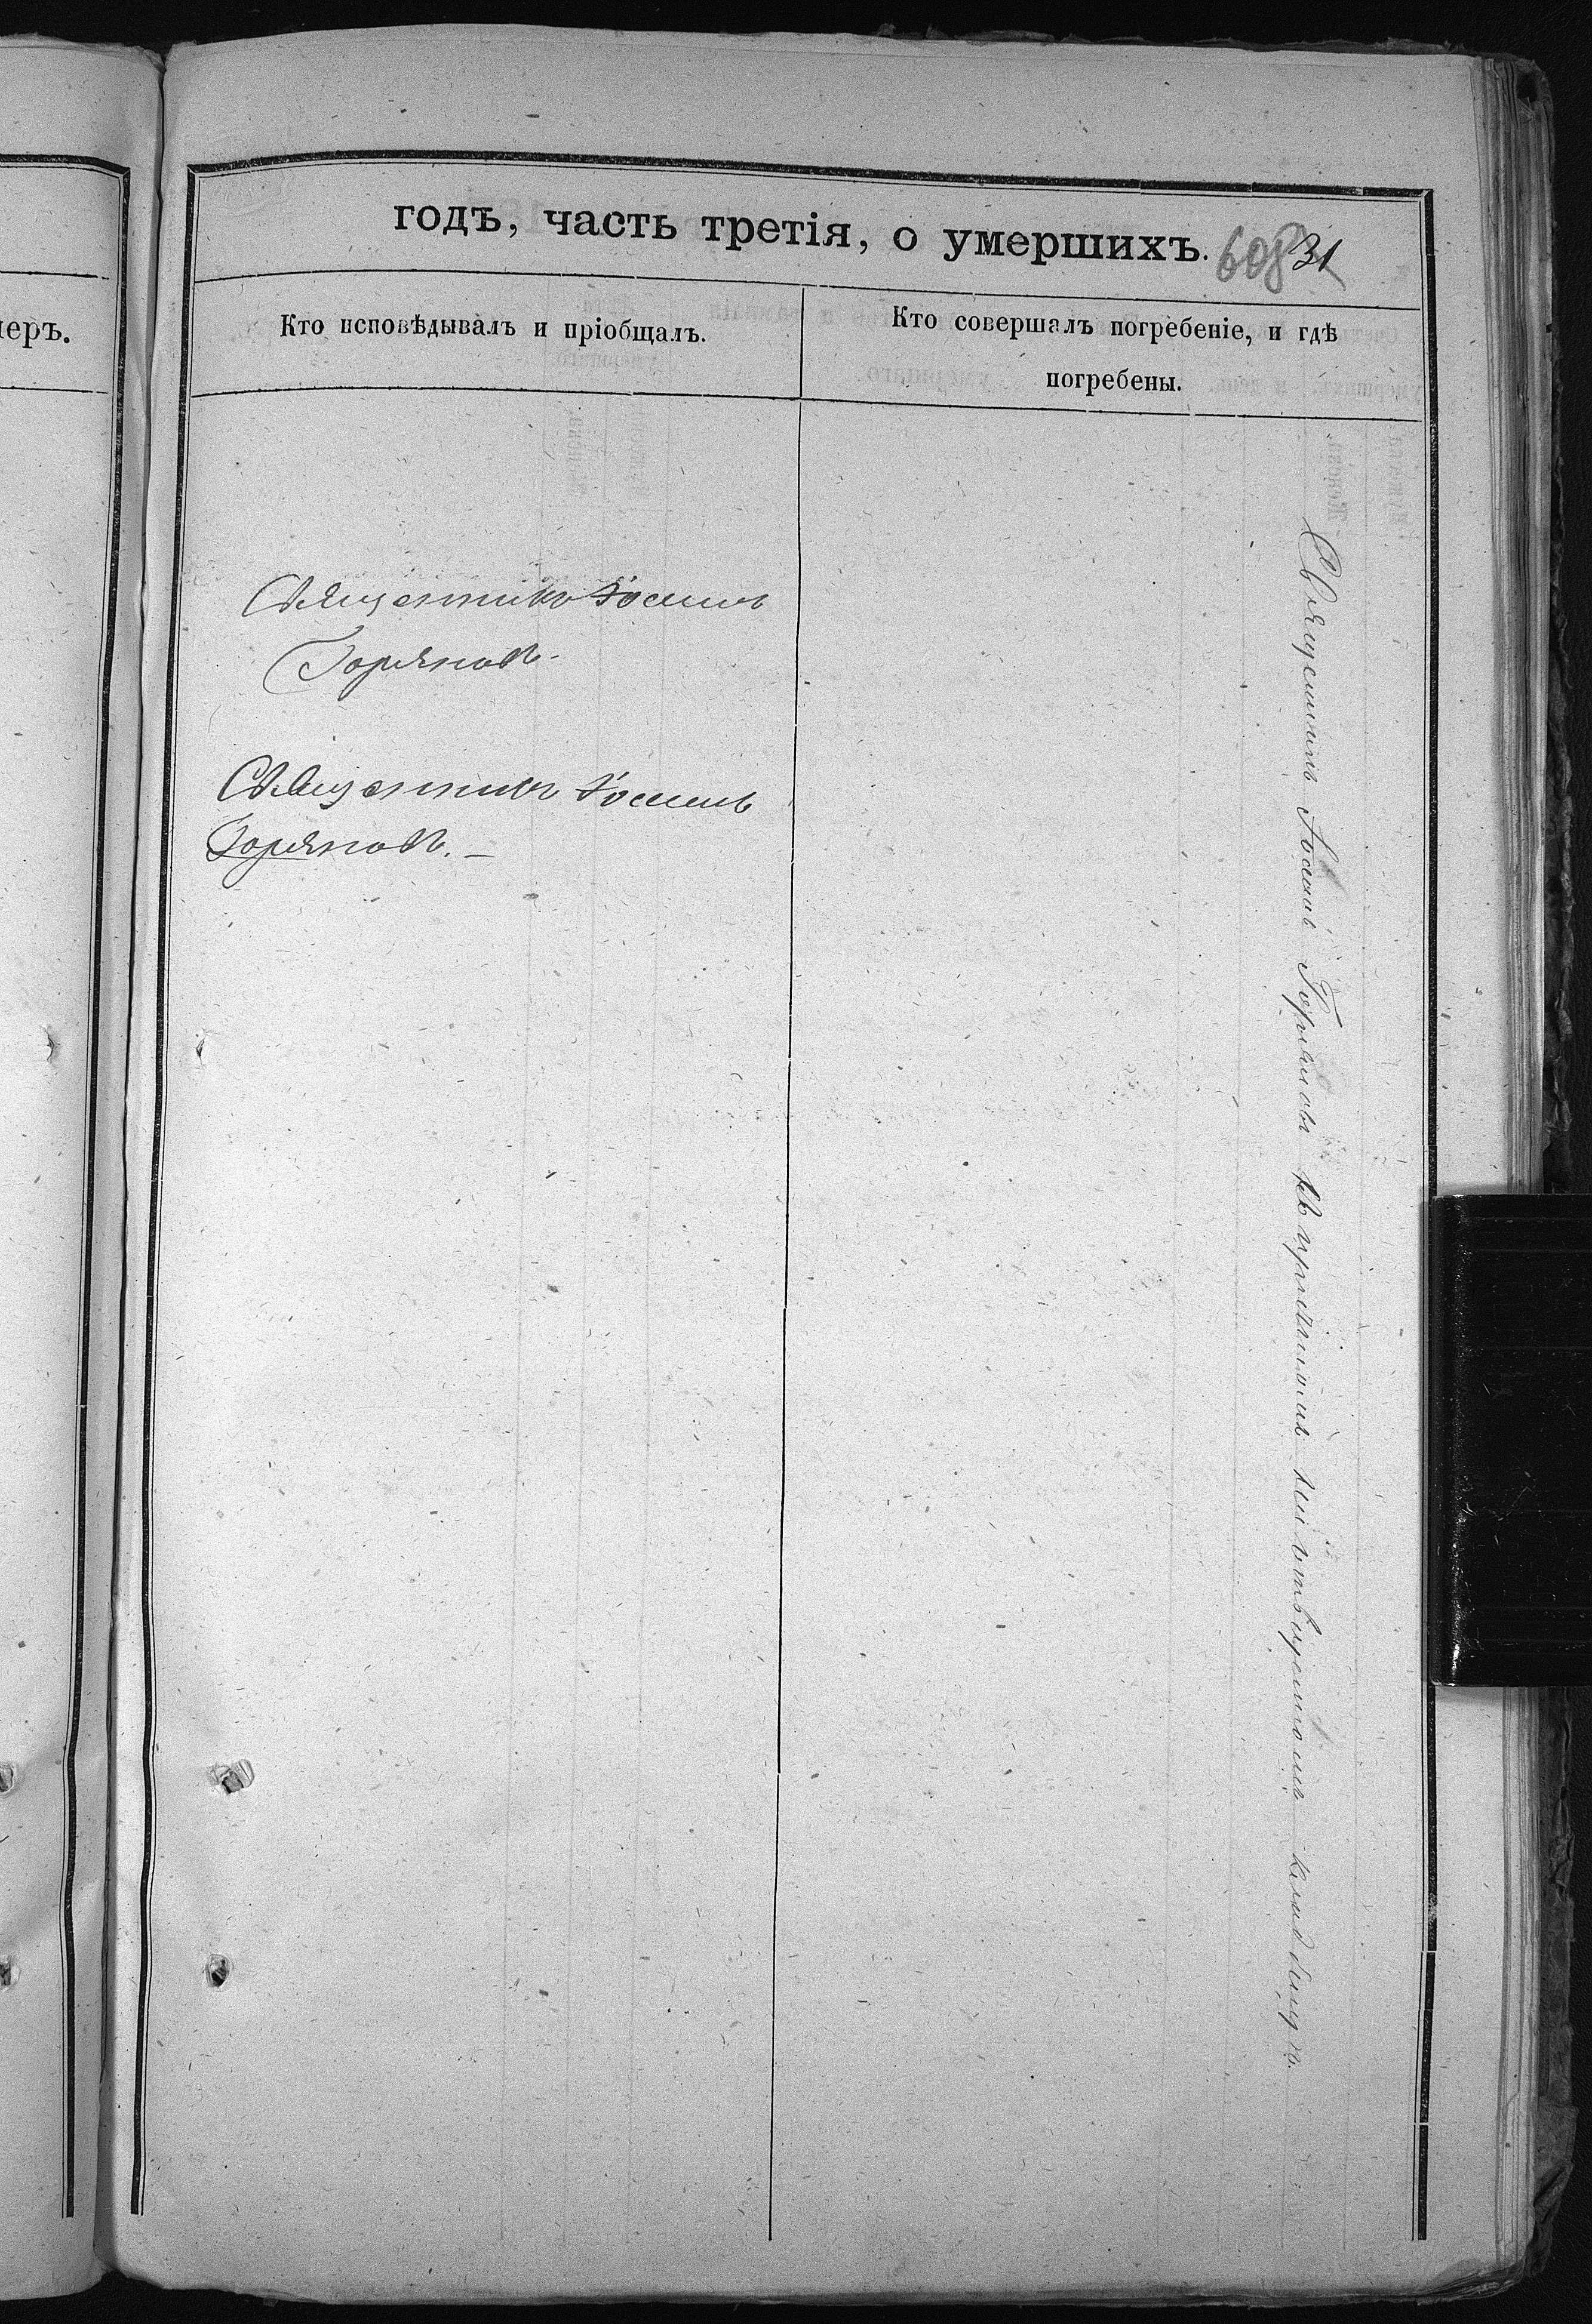 годъ, часть третія, о умершихъ.
608 31
меръ.
Кто исповѣдывалъ и пріобщалъ.
Кто совершалъ погребеніе, и гдѣ
погребены.
Священникъ Іоаннъ
Горяновъ.
Священникъ Іоаннъ
Горяновъ. —
Священникъ Іоаннъ Горяновъ на приходскомъ кладбищѣ.